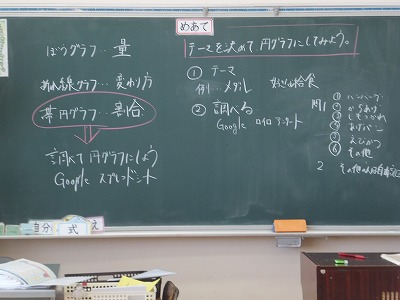 めあて
テーマを決めて円グラフにしてみよう。
ぼうグラフ…量
折れ線グラフ…変わり方
帯円グラフ…割合
調べて円グラフにしよう
Google スプレッドシート
① テーマ
例…メダル 好きな給食
② 調べる
Google ロイロ アンケート
問1
① ハンバーグ
② からあげ
③
④ あげパン
⑤ えびかつ
⑥ その他
2 その他の人は
自分 式 え